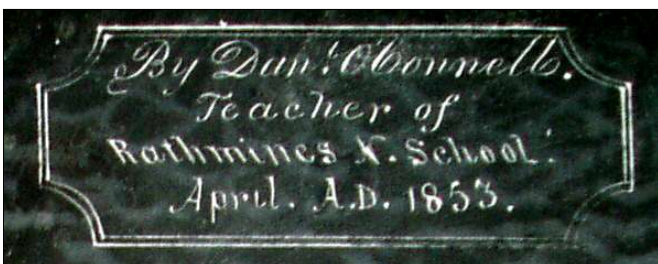 By Danl. O'Connell.
Teacher of
Rathmines N. School.
April. A.D. 1853.